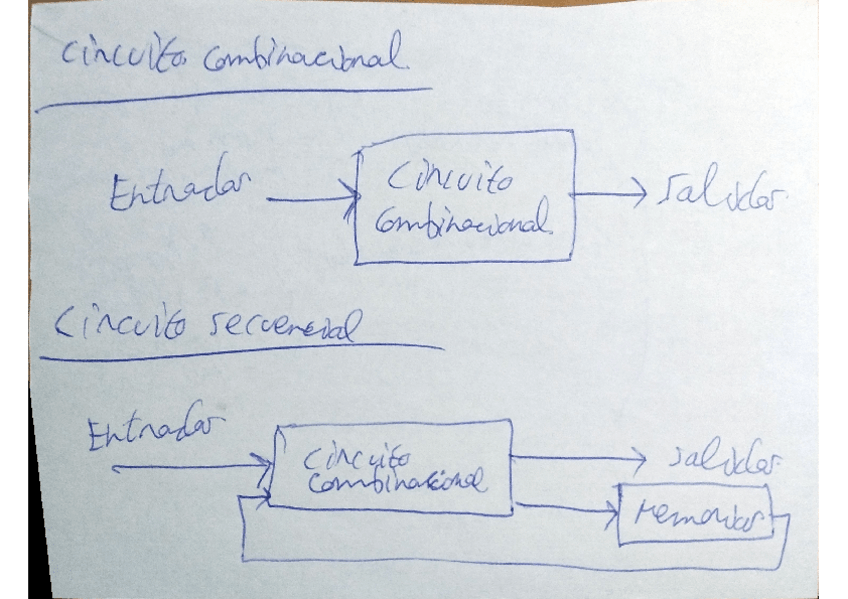 Circuito combinacional.
Entradas
Circuito
Combinacional.
Salidas
Circuito secuencial
Entradas
Circuito
combinacional
salidas
Memorias